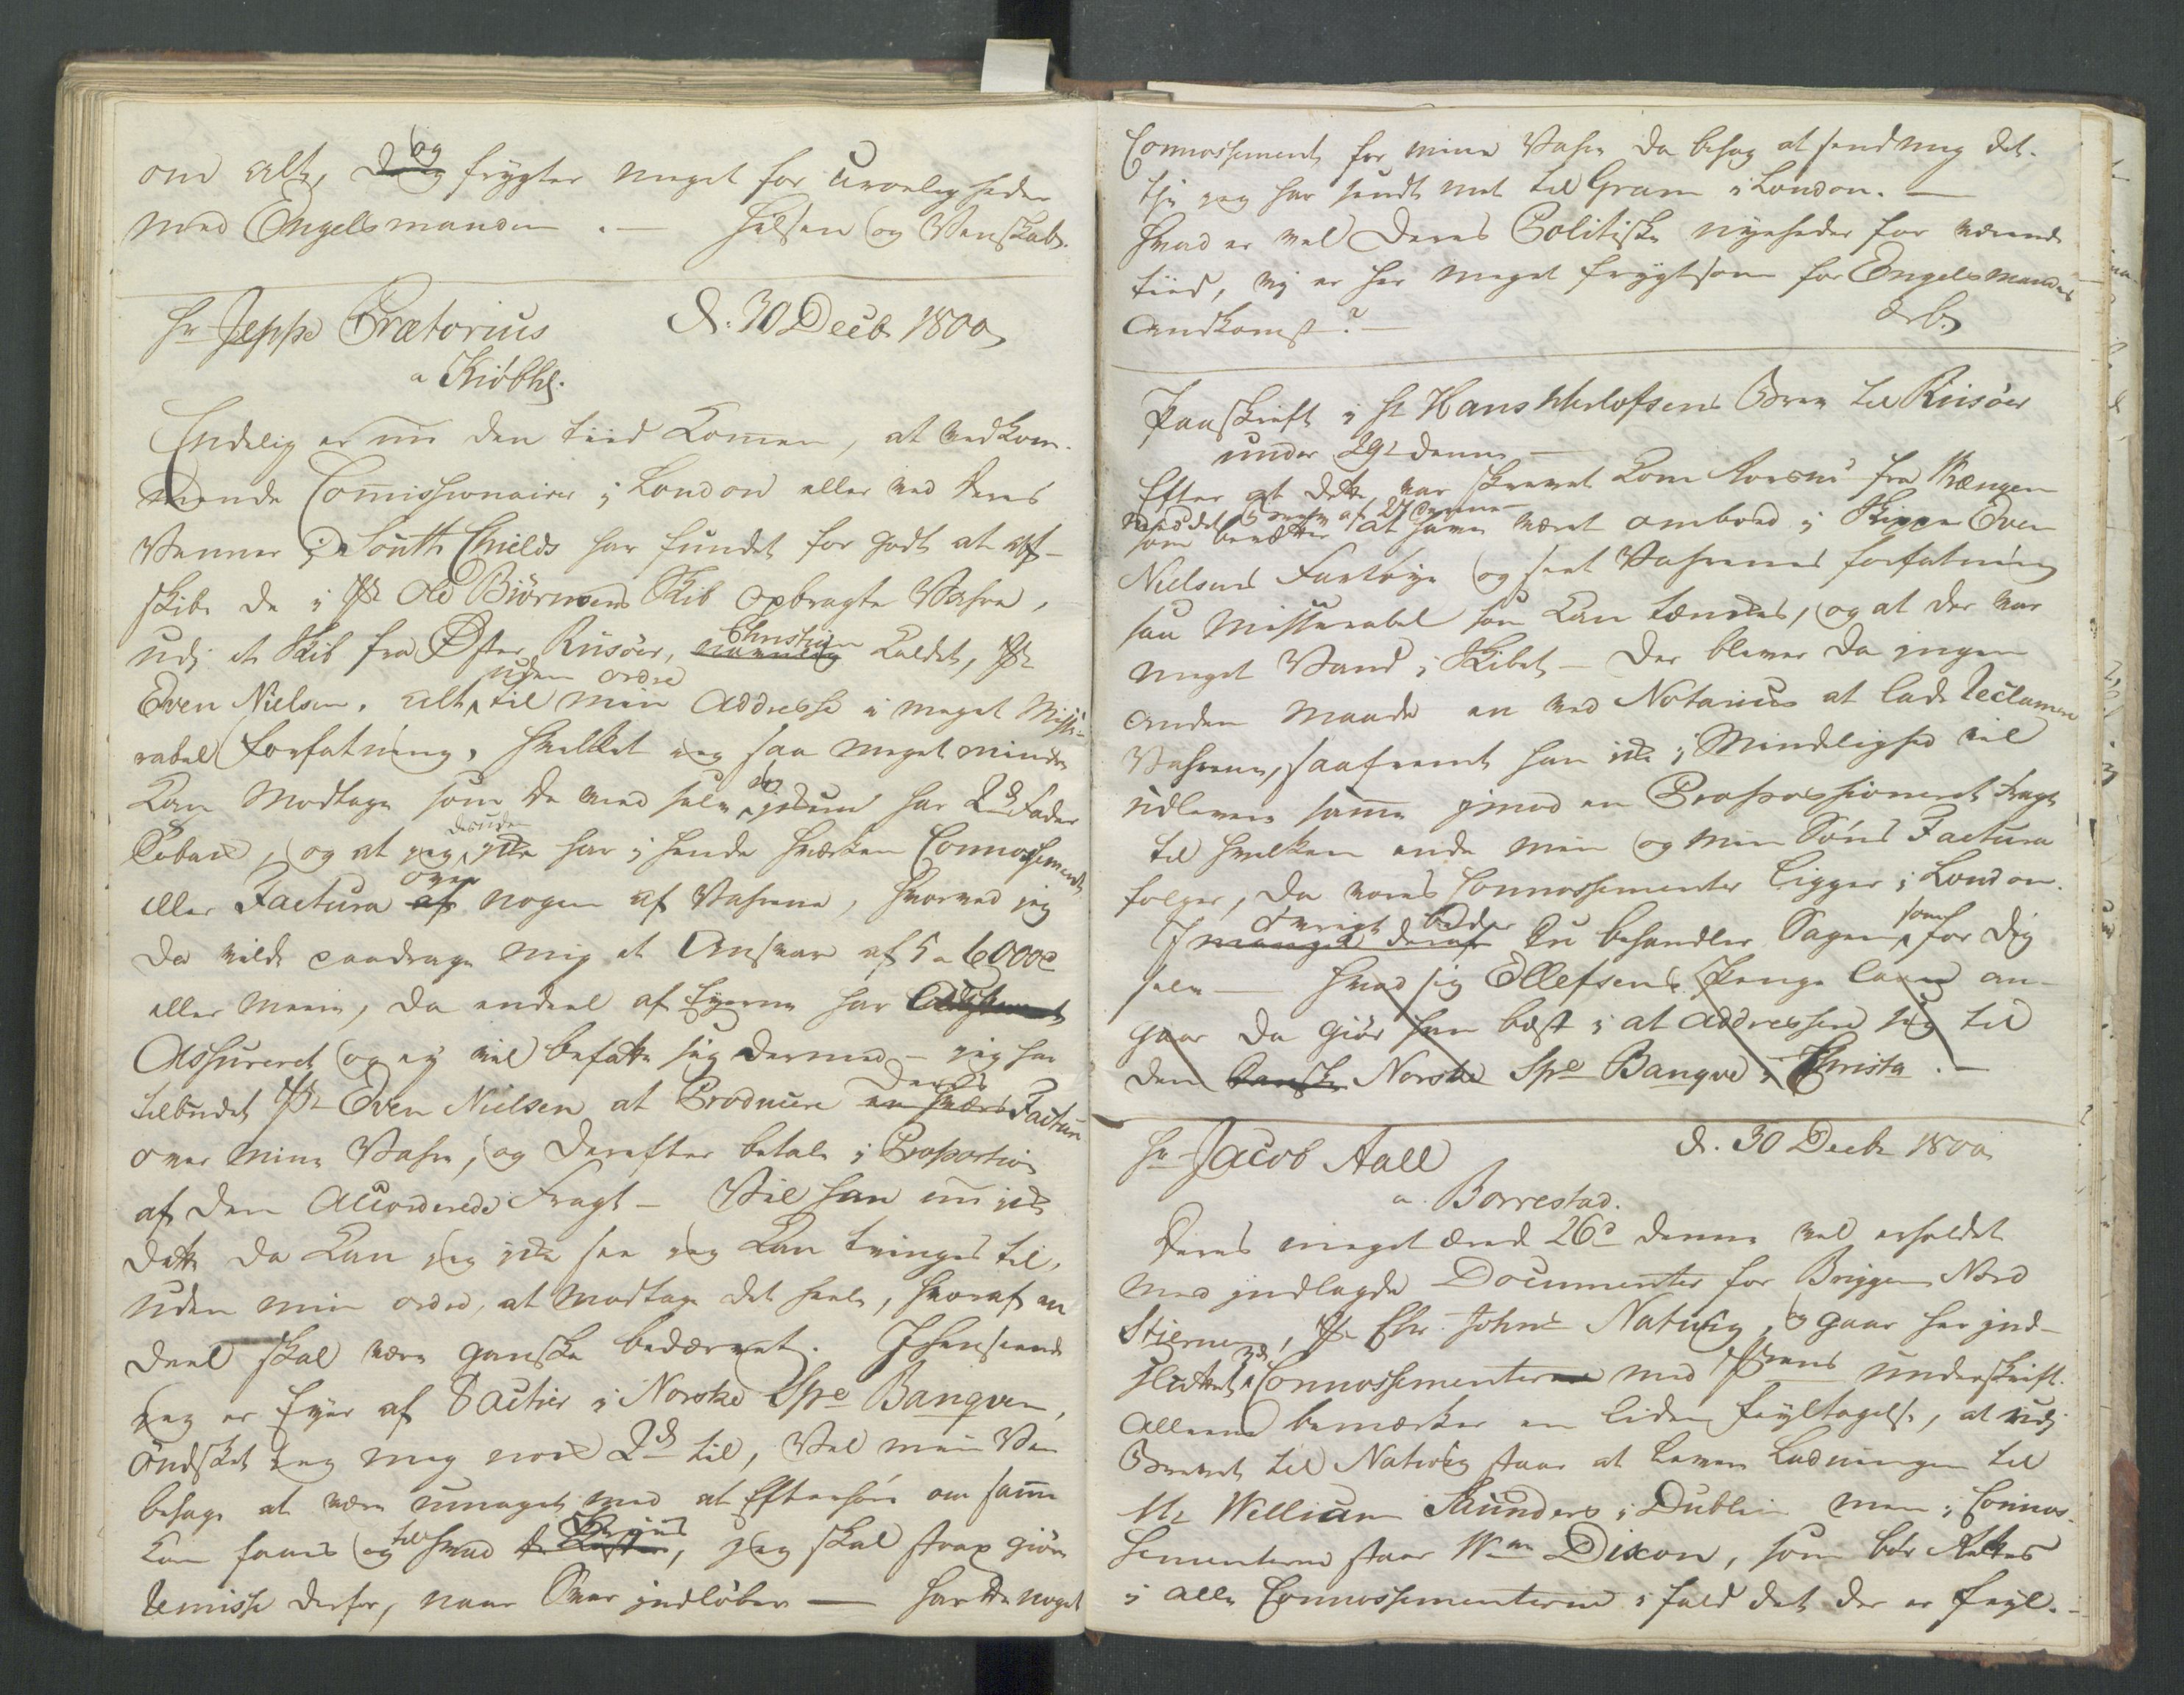 om alt, og frygter meget for uroeligheder
med Engelsmanden. — Helsen og Venskab.
Hr Jeppe Prætorius d. 30 Decb 1800,
a Kiøbh.
Endelig er nu den tiid Kommen, at vedkom-
mende Commissionairer i London eller ved deres
Venner i South Chields har fundet for godt at af-
skibe de i Skr Ole Biörnsens Skib opbragte Vahre,
udj et Skib fra Øster Riisöer, Christian Kaldet, Skr
uden ordre
Even Nielsen. alt til min Addresse i meget Misse-
rabel forfatning, hvilket jeg saa meget mindre
Kan Modtage som de med selv har 2de Fader
desuden
Toback, og at jeg ikke har i hende hverken Connossement
over
eller Factura af nogen af Vahrene, hvorved jeg
da vilde paadrage mig et Ansvar af 5 a 6000
eller meere, da endeel af Eyerne har
Assureret og ey vil befatte sig dermed — jeg har
tilbudet Skr Even Nielsen at Producere Deres Factura
over mine Vahre, og derefter betale i Proportion
af den Accorderede Fragt — Vil han nu ikke
dette da Kan jeg ikke see jeg Kan tvinges til,
uden min ordre, at Modtage det heele, hvoraf en
Deel skal være ganske bedærvet. I henseende
jeg er Eyer af 8 Actier i Norske Spe Banqven,
öndsket jeg mig nok 2de til, Vil min Ven
behage at være umaget med at Efterhöre om samme
Kan faaes og til hvad Priis, jeg skal strax giöre
Remisse derfor, naar Svar indlöber — har De noget
Connossement for mine Vahre da behag at send mig det.
thi jeg har sendt mit til Gram i London. —
Hvad er vel Deres Politiske nyeheder for værende
tiid, vij er her meget frygtsom for Engelsmandens
Andkomst? —
Paaskrift i Hr Hans Herlofsens Brev til Riisöer
under 29de denne —
Efter at dette var skrevet Kom fra Krængen
med det af 27 denne
som beretter at have været ombord i Skipper Even
Nielsens Fartöye og seet Vahrenes forfatning
saa Misserabel som Kan tænkes, og at der var
meget Vand i Skibet — Der bliver da ingen
anden Maade en ved Notarius at lade Reclamere
Vahrene, saafremt han ikke i Mindelighed vil
udlevere samme imod en Proportioneret fragt
til hvilken ende min og min Söns Factura
folger, da vores Connossementer ligger i London.
I övrigt beder Du behandler Sagen som for dig
selv — Hvad sig Ellefsens Penge laan an-
gaar da giör han best i at addressere sig til
den Danske Norske Spe Banqve i Christa. —
Hr Jacob Aall d. 30 Decb 1800,
a. Borrestad.
Deres meget ærede 26de denne vel erholdet
med indlagde Documenter for Briggen Nord
Stiernen, Skr Chr. Johns Natwig, og gaar her ind-
sluttet Connossementerne med underskrift.
Alleene bemærker en liden feyltagelse, at udj
Brevet til Natwig staar at levere Ladningen til
Mr William Saunders i Dublin men i Connos-
sementerne staar Wm Dixon, som bör Rettes
i alle Connossementerne i fald det der er feyl. —